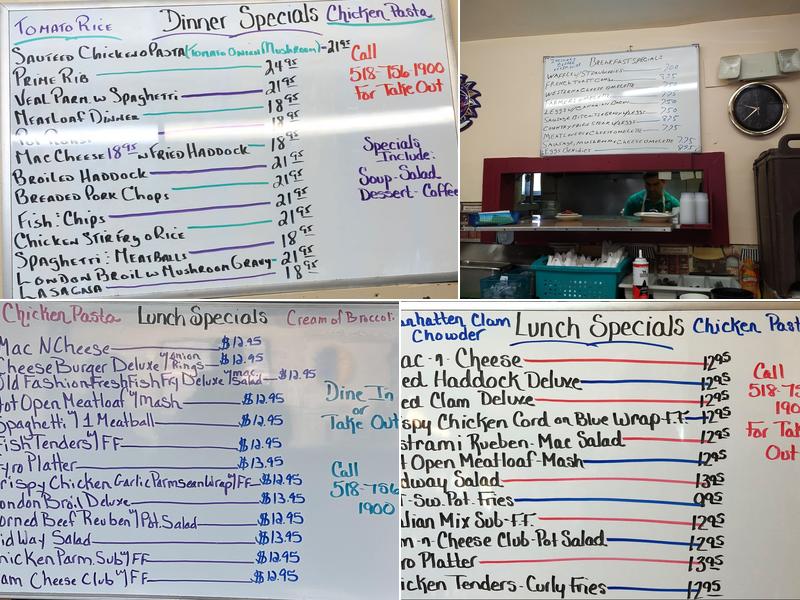 Tomato Rice Dinner Specials Chicken Pasta
Sauteed Chicken o Pasta (Tomato Onion Mushroom) - 21.95
Prime Rib 24.95
Veal Parm. w Spaghetti 21.95
Meatloaf Dinner 18.95
18.95
Mac Cheese 18.95 w Fried Haddock 18.95
Broiled Haddock 21.95
Breaded Pork Chops 21.95
Fish & Chips 21.95
Chicken Stir Fry o Rice 21.95
Spaghetti & Meatballs 18.95
London Broil w Mushroom Gravy 21.95
Lasagna 18.95
Call
518-756 1900
For Take Out
Specials
Include:
Soup-Salad
Dessert-Coffee
Breakfast Specials
Waffle w/ Strawberries
French Toast
Western Cheese Omelette
Country Fried Steak w/ Eggs
Meat Lovers Cheese Omelette 7.75
Sausage, Mushroom, Cheese Omelette 7.75
Eggs Benedict 8.75
Chicken Pasta Lunch Specials Cream of Broccoli
Mac N Cheese $12.95
Cheese Burger Deluxe w/ Onion Rings $12.95
Old Fashion Fresh Fish Fry Deluxe w/ mac Salad $12.95
Hot Open Meatloaf w/ mash $12.95
Spaghetti w/ 1 Meatball $12.95
Fish Tenders w/ FF $12.95
Gyro Platter $13.95
Crispy Chicken Garlic Parmsean Wrap w/ FF $12.95
London Broil Deluxe $13.95
Corned Beef Reuben w/ Pot. Salad $12.95
Mid Way Salad $13.95
Chicken Parm. Sub w/ FF $12.95
Ham Cheese Club w/ FF $12.95
Dine In
or
Take Out
Call
518-756
1900
anhatten Clam Chowder Lunch Specials Chicken Past
ac-n-Cheese 12.95
ed Haddock Deluxe 12.95
ed Clam Deluxe 12.95
spy Chicken Cord on Blue Wrap-F.F. 12.95
strami Rueben-Mac Salad 12.95
t Open Meatloaf-Mash 12.95
dway Salad 13.95
-Sw. Pot. Fries 9.95
lian Mix Sub-F.F. 12.95
m-n-Cheese Club-Pot Salad 12.95
ro Platter 13.95
icken Tenders-Curly Fries 12.95
Call
518-75
190
For Tak
Out